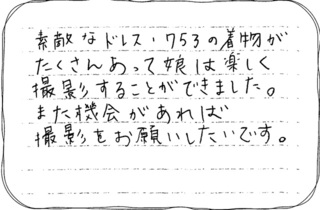 素敵なドレス・753の着物が
たくさんあって娘は楽しく
撮影することができました。
また機会があれば
撮影をお願いしたいです。